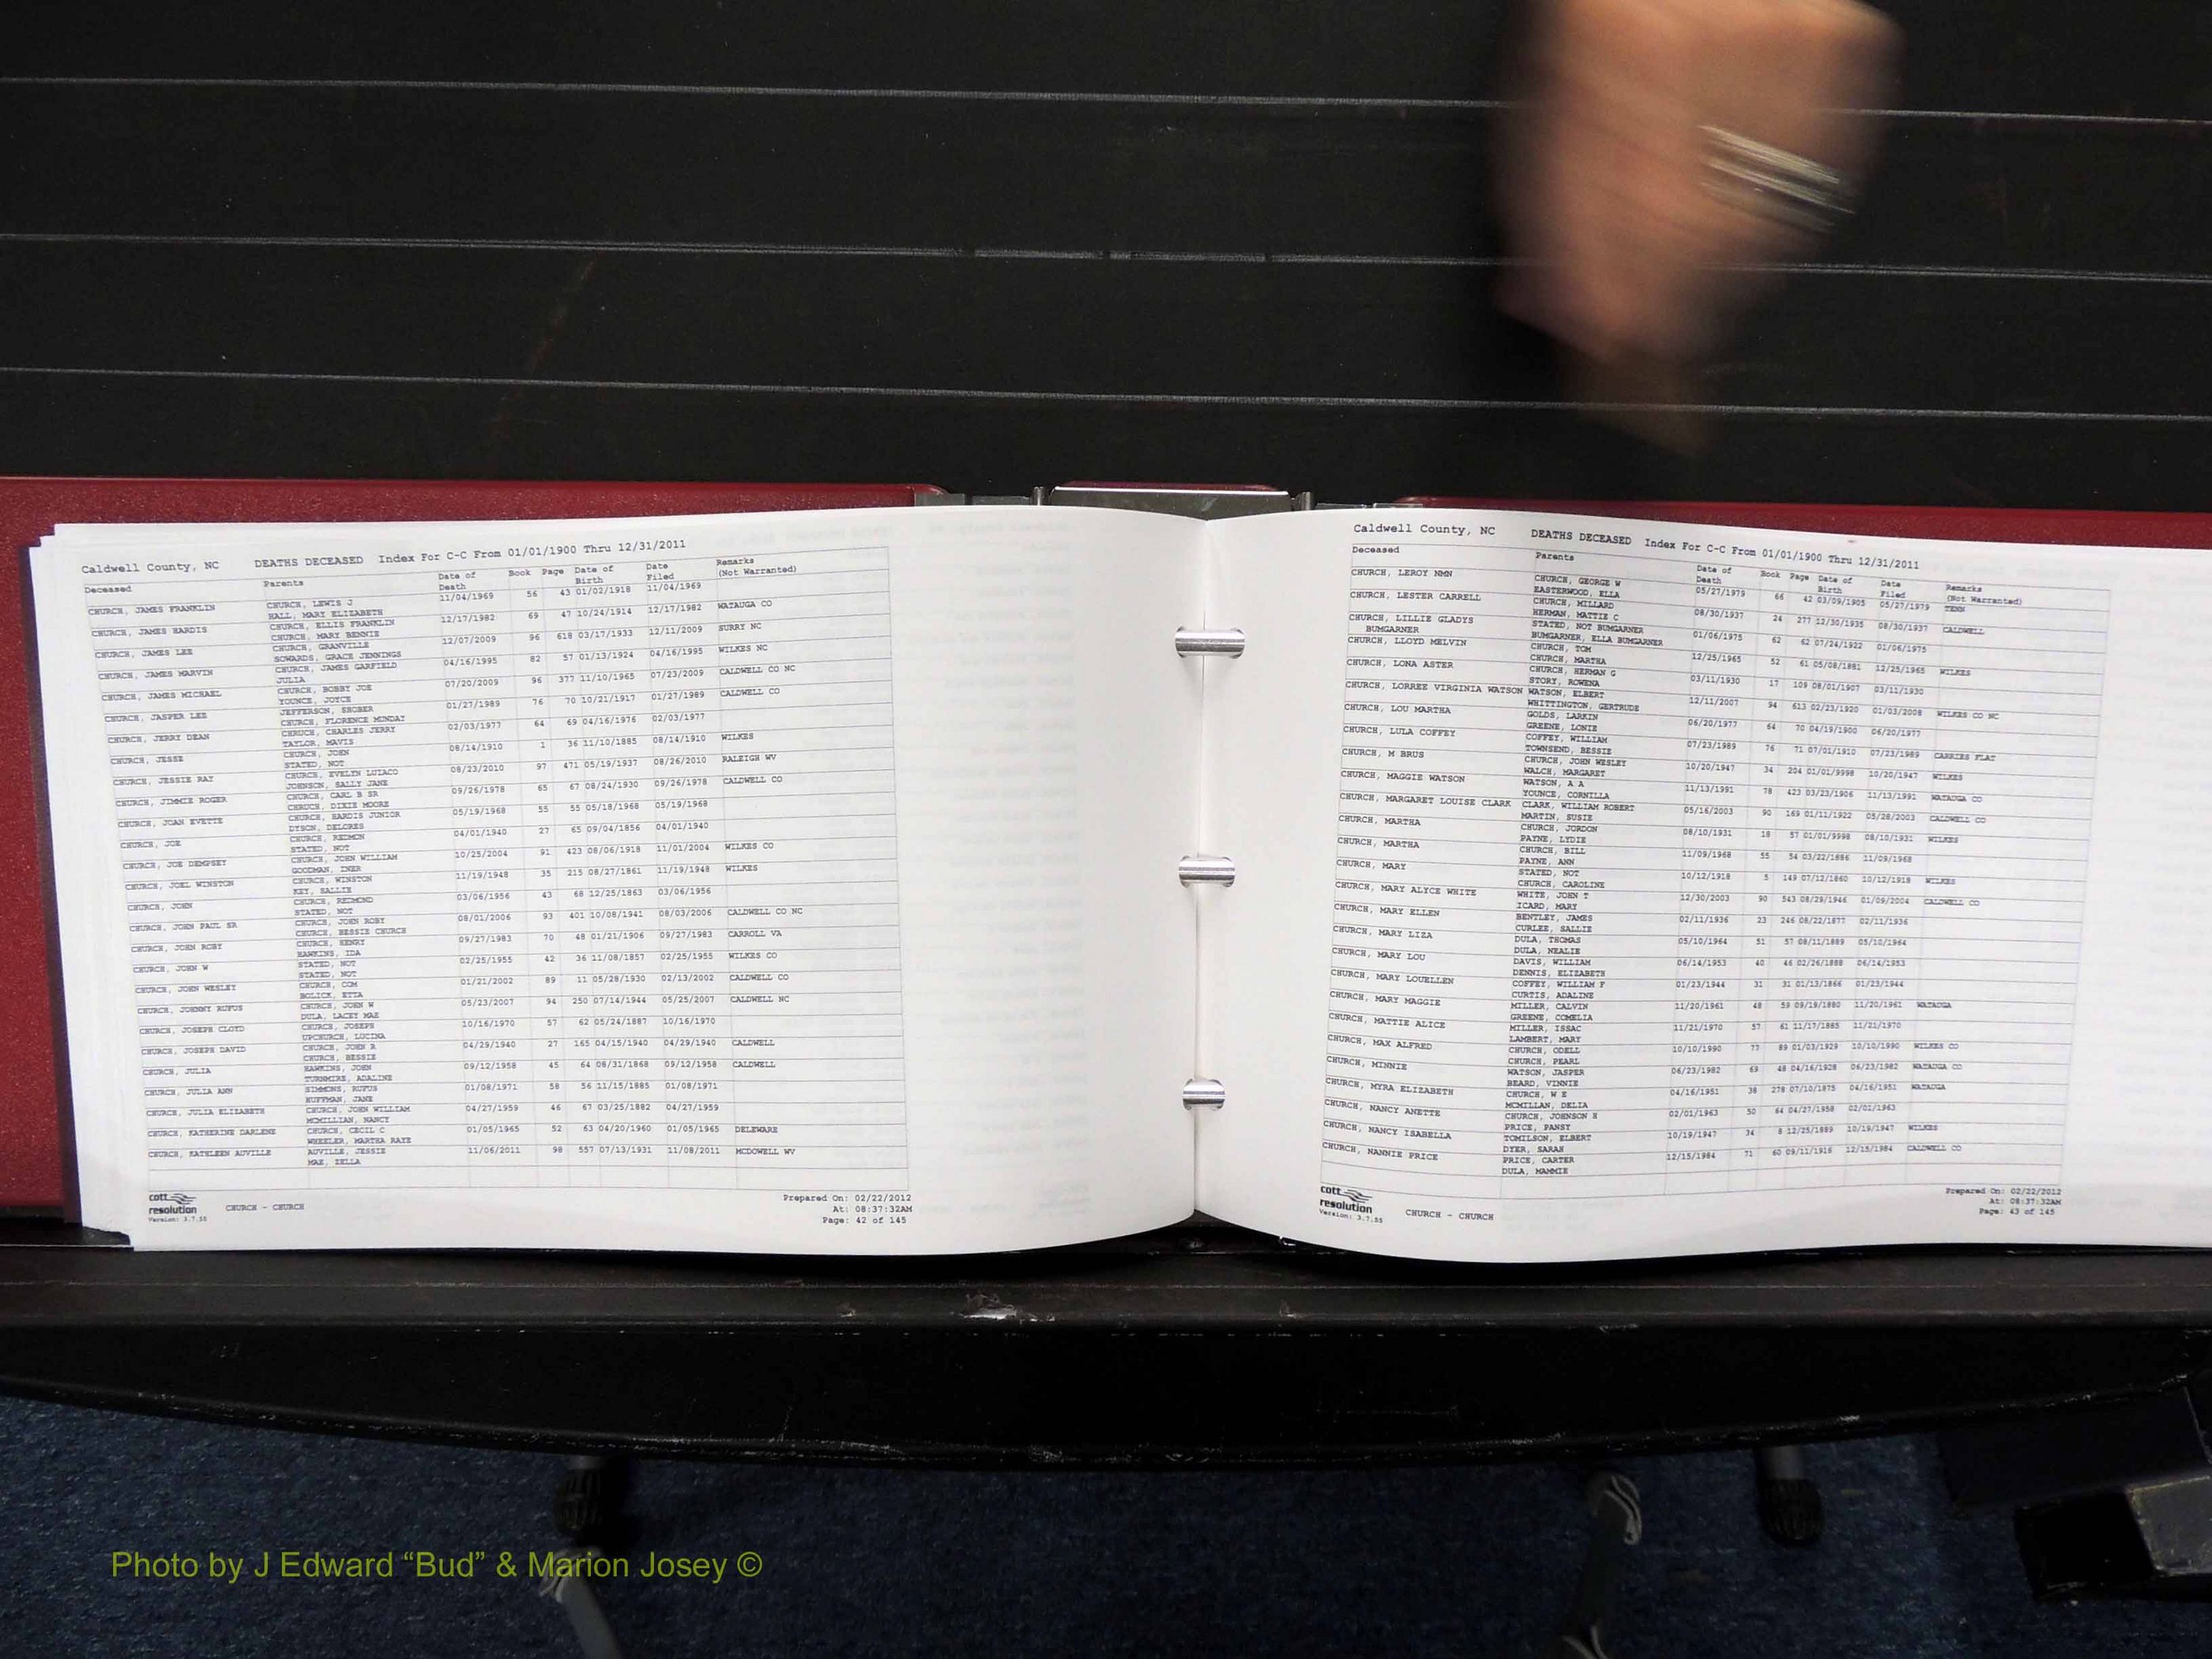 Caldwell County, NC DEATHS DECEASED Index For C-C From 01/01/1900 Thru 12/31/2011
Deceased Parents Date of Death Book Page Date of Birth Date Filed Remarks (Not Warranted)
CHURCH, JAMES FRANKLIN CHURCH, LEWIS J 11/04/1969 56 43 01/02/1918 11/04/1969
HALL, MARY ELIZABETH
CHURCH, JAMES HARDIS CHURCH, ELLIS FRANKLIN 12/17/1982 69 47 10/24/1914 12/17/1982 WATAUGA CO
CHURCH, MARY BENNIE
CHURCH, JAMES LEE CHURCH, GRANVILLE 12/07/2009 96 618 03/17/1933 12/11/2009 SURRY NC
SOWARDS, GRACE JENNINGS
CHURCH, JAMES MARVIN CHURCH, JAMES GARFIELD 04/16/1995 82 57 01/13/1924 04/16/1995 WILKES NC
JULIA
CHURCH, JAMES MICHAEL CHURCH, BOBBY JOE 07/20/2009 96 377 11/10/1965 07/23/2009 CALDWELL CO NC
YOUNCE, JOYCE
CHURCH, JASPER LEE JEFFERSON, SHOBER 01/27/1989 76 70 10/21/1917 01/27/1989 CALDWELL CO
CHURCH, FLORENCE MUNDAY
CHURCH, JERRY DEAN CHRUCH, CHARLES JERRY 02/03/1977 64 69 04/16/1976 02/03/1977
TAYLOR, MAVIS
CHURCH, JESSE CHURCH, JOHN 08/14/1910 1 36 11/10/1885 08/14/1910 WILKES
STATED, NOT
CHURCH, JESSIE RAY CHURCH, EVELYN LUZACO 08/23/2010 97 471 05/19/1937 08/26/2010 RALEIGH WV
JOHNSON, SALLY JANE
CHURCH, JIMMIE ROGER CHURCH, CARL B SR 09/26/1978 65 67 08/24/1930 09/26/1978 CALDWELL CO
CHRUCH, DIXIE MOORE
CHURCH, JOAN EVETTE CHURCH, HARDIS JUNIOR 05/19/1968 55 55 05/18/1968 05/19/1968
DYSON, DELORES
CHURCH, JOE CHURCH, REDMON 04/01/1940 27 65 09/04/1856 04/01/1940
STATED, NOT
CHURCH, JOE DEMPSEY CHURCH, JOHN WILLIAM 10/25/2004 91 423 08/06/1918 11/01/2004 WILKES CO
GOODMAN, INER
CHURCH, JOEL WINSTON CHURCH, WINSTON 11/19/1948 35 215 08/27/1861 11/19/1948 WILKES
KEY, SALLIE
CHURCH, JOHN CHURCH, REDMOND 03/06/1956 43 68 12/25/1863 03/06/1956
STATED, NOT
CHURCH, JOHN PAUL SR CHURCH, JOHN ROBY 08/01/2006 93 401 10/08/1941 08/03/2006 CALDWELL CO NC
CHURCH, BESSIE CHURCH
CHURCH, JOHN ROBY CHURCH, HENRY 09/27/1983 70 48 01/21/1906 09/27/1983 CARROLL VA
HAWKINS, IDA
CHURCH, JOHN W STATED, NOT 02/25/1955 42 36 11/08/1857 02/25/1955 WILKES CO
STATED, NOT
CHURCH, JOHN WESLEY CHURCH, COM 01/21/2002 89 11 05/28/1930 02/13/2002 CALDWELL CO
BOLICK, ETTA
CHURCH, JOHNNY RUFUS CHURCH, JOHN W 05/23/2007 94 250 07/14/1944 05/25/2007 CALDWELL NC
DULA, LACEY MAE
CHURCH, JOSEPH CLOYD CHURCH, JOSEPH 10/16/1970 57 62 05/24/1887 10/16/1970
UPCHURCH, LUCINA
CHURCH, JOSEPH DAVID CHURCH, JOHN R 04/29/1940 27 165 04/15/1940 04/29/1940 CALDWELL
CHURCH, BESSIE
CHURCH, JULIA HAWKINS, JOHN 09/12/1958 45 64 08/31/1868 09/12/1958 CALDWELL
TURNMIRE, ADALINE
CHURCH, JULIA ANN SIMMONS, RUFUS 01/08/1971 58 56 11/15/1885 01/08/1971
HUFFMAN, JANE
CHURCH, JULIA ELIZABETH CHURCH, JOHN WILLIAM 04/27/1959 46 67 03/25/1882 04/27/1959
MCMILLIAN, NANCY
CHURCH, KATHERINE DARLENE CHURCH, CECIL C 01/05/1965 52 63 04/20/1960 01/05/1965 DELEWARE
WHEELER, MARTHA RAYE
CHURCH, KATHLEEN AUVILLE AUVILLE, JESSIE 11/06/2011 98 557 07/13/1931 11/08/2011 MCDOWELL WV
MAE, ZELLA
cott resolution
Version: 3.7.55
CHURCH - CHURCH
Prepared On: 02/22/2012
At: 08:37:32AM
Page: 42 of 145
Caldwell County, NC DEATHS DECEASED Index For C-C From 01/01/1900 Thru 12/31/2011
Deceased Parents Date of Death Book Page Date of Birth Date Filed Remarks (Not Warranted)
CHURCH, LEROY NMN CHURCH, GEORGE W 05/27/1979 66 42 03/09/1905 05/27/1979 TENN
EASTERWOOD, ELLA
CHURCH, LESTER CARRELL CHURCH, MILLARD 08/30/1937 24 277 12/30/1935 08/30/1937 CALDWELL
HERMAN, MATTIE C
CHURCH, LILLIE GLADYS STATED, NOT BUMGARNER 01/06/1975 62 62 07/24/1922 01/06/1975
BUMGARNER BUMGARNER, ELLA BUMGARNER
CHURCH, LLOYD MELVIN CHURCH, TOM 12/25/1965 52 61 05/08/1881 12/25/1965 WILKES
CHURCH, MARTHA
CHURCH, LONA ASTER CHURCH, HERMAN G 03/11/1930 17 109 08/01/1907 03/11/1930
STORY, ROWENA
CHURCH, LORREE VIRGINIA WATSON WATSON, ELBERT 12/11/2007 94 613 02/23/1920 01/03/2008 WILKES CO NC
WHITTINGTON, GERTRUDE
CHURCH, LOU MARTHA GOLDS, LARKIN 06/20/1977 64 70 04/19/1900 06/20/1977
GREENE, LONIE
CHURCH, LULA COFFEY COFFEY, WILLIAM 07/23/1989 76 71 07/01/1910 07/23/1989 CARRIES FLAT
TOWNSEND, BESSIE
CHURCH, M BRUS CHURCH, JOHN WESLEY 10/20/1947 34 204 01/01/9998 10/20/1947 WILKES
WALCH, MARGARET
CHURCH, MAGGIE WATSON WATSON, A A 11/13/1991 78 423 03/23/1906 11/13/1991 WATAUGA CO
YOUNCE, CORNILLA
CHURCH, MARGARET LOUISE CLARK CLARK, WILLIAM ROBERT 05/16/2003 90 169 01/11/1922 05/28/2003 CALDWELL CO
MARTIN, SUSIE
CHURCH, MARTHA CHURCH, JORDON 08/10/1931 18 57 01/01/9998 08/10/1931 WILKES
PAYNE, LYDIE
CHURCH, MARTHA CHURCH, BILL 11/09/1968 55 54 03/22/1886 11/09/1968
PAYNE, ANN
CHURCH, MARY STATED, NOT 10/12/1918 5 149 07/12/1860 10/12/1918 WILKES
CHURCH, CAROLINE
CHURCH, MARY ALYCE WHITE WHITE, JOHN T 12/30/2003 90 543 08/29/1946 01/09/2004 CALDWELL CO
ICARD, MARY
CHURCH, MARY ELLEN BENTLEY, JAMES 02/11/1936 23 246 08/22/1877 02/11/1936
CURLEE, SALLIE
CHURCH, MARY LIZA DULA, THOMAS 05/10/1964 51 57 08/11/1889 05/10/1964
DULA, NEALIE
CHURCH, MARY LOU DAVIS, WILLIAM 06/14/1953 40 46 02/26/1888 06/14/1953
DENNIS, ELIZABETH
CHURCH, MARY LOUELLEN COFFEY, WILLIAM F 01/23/1944 31 31 01/13/1866 01/23/1944
CURTIS, ADALINE
CHURCH, MARY MAGGIE MILLER, CALVIN 11/20/1961 48 59 09/19/1880 11/20/1961 WATAUGA
GREENE, COMELIA
CHURCH, MATTIE ALICE MILLER, ISSAC 11/21/1970 57 61 11/17/1885 11/21/1970
LAMBERT, MARY
CHURCH, MAX ALFRED CHURCH, ODELL 10/10/1990 77 89 01/03/1929 10/10/1990 WILKES CO
CHURCH, PEARL
CHURCH, MINNIE WATSON, JASPER 06/23/1982 69 48 04/16/1928 06/23/1982 WATAUGA CO
BEARD, VINNIE
CHURCH, MYRA ELIZABETH CHURCH, W E 04/16/1951 38 278 07/10/1875 04/16/1951 WATAUGA
MCMILLAN, DELIA
CHURCH, NANCY ANETTE CHURCH, JOHNSON H 02/01/1963 50 64 04/27/1958 02/01/1963
PRICE, PANSY
CHURCH, NANCY ISABELLA TOMILSON, ELBERT 10/19/1947 34 8 12/25/1889 10/19/1947 WILKES
DYER, SARAH
CHURCH, NANNIE PRICE PRICE, CARTER 12/15/1984 71 60 09/11/1916 12/15/1984 CALDWELL CO
DULA, MAMMIE
cott resolution
Version: 3.7.55
CHURCH - CHURCH
Prepared On: 02/22/2012
At: 08:37:32AM
Page: 43 of 145
Photo by J Edward “Bud” & Marion Josey ©